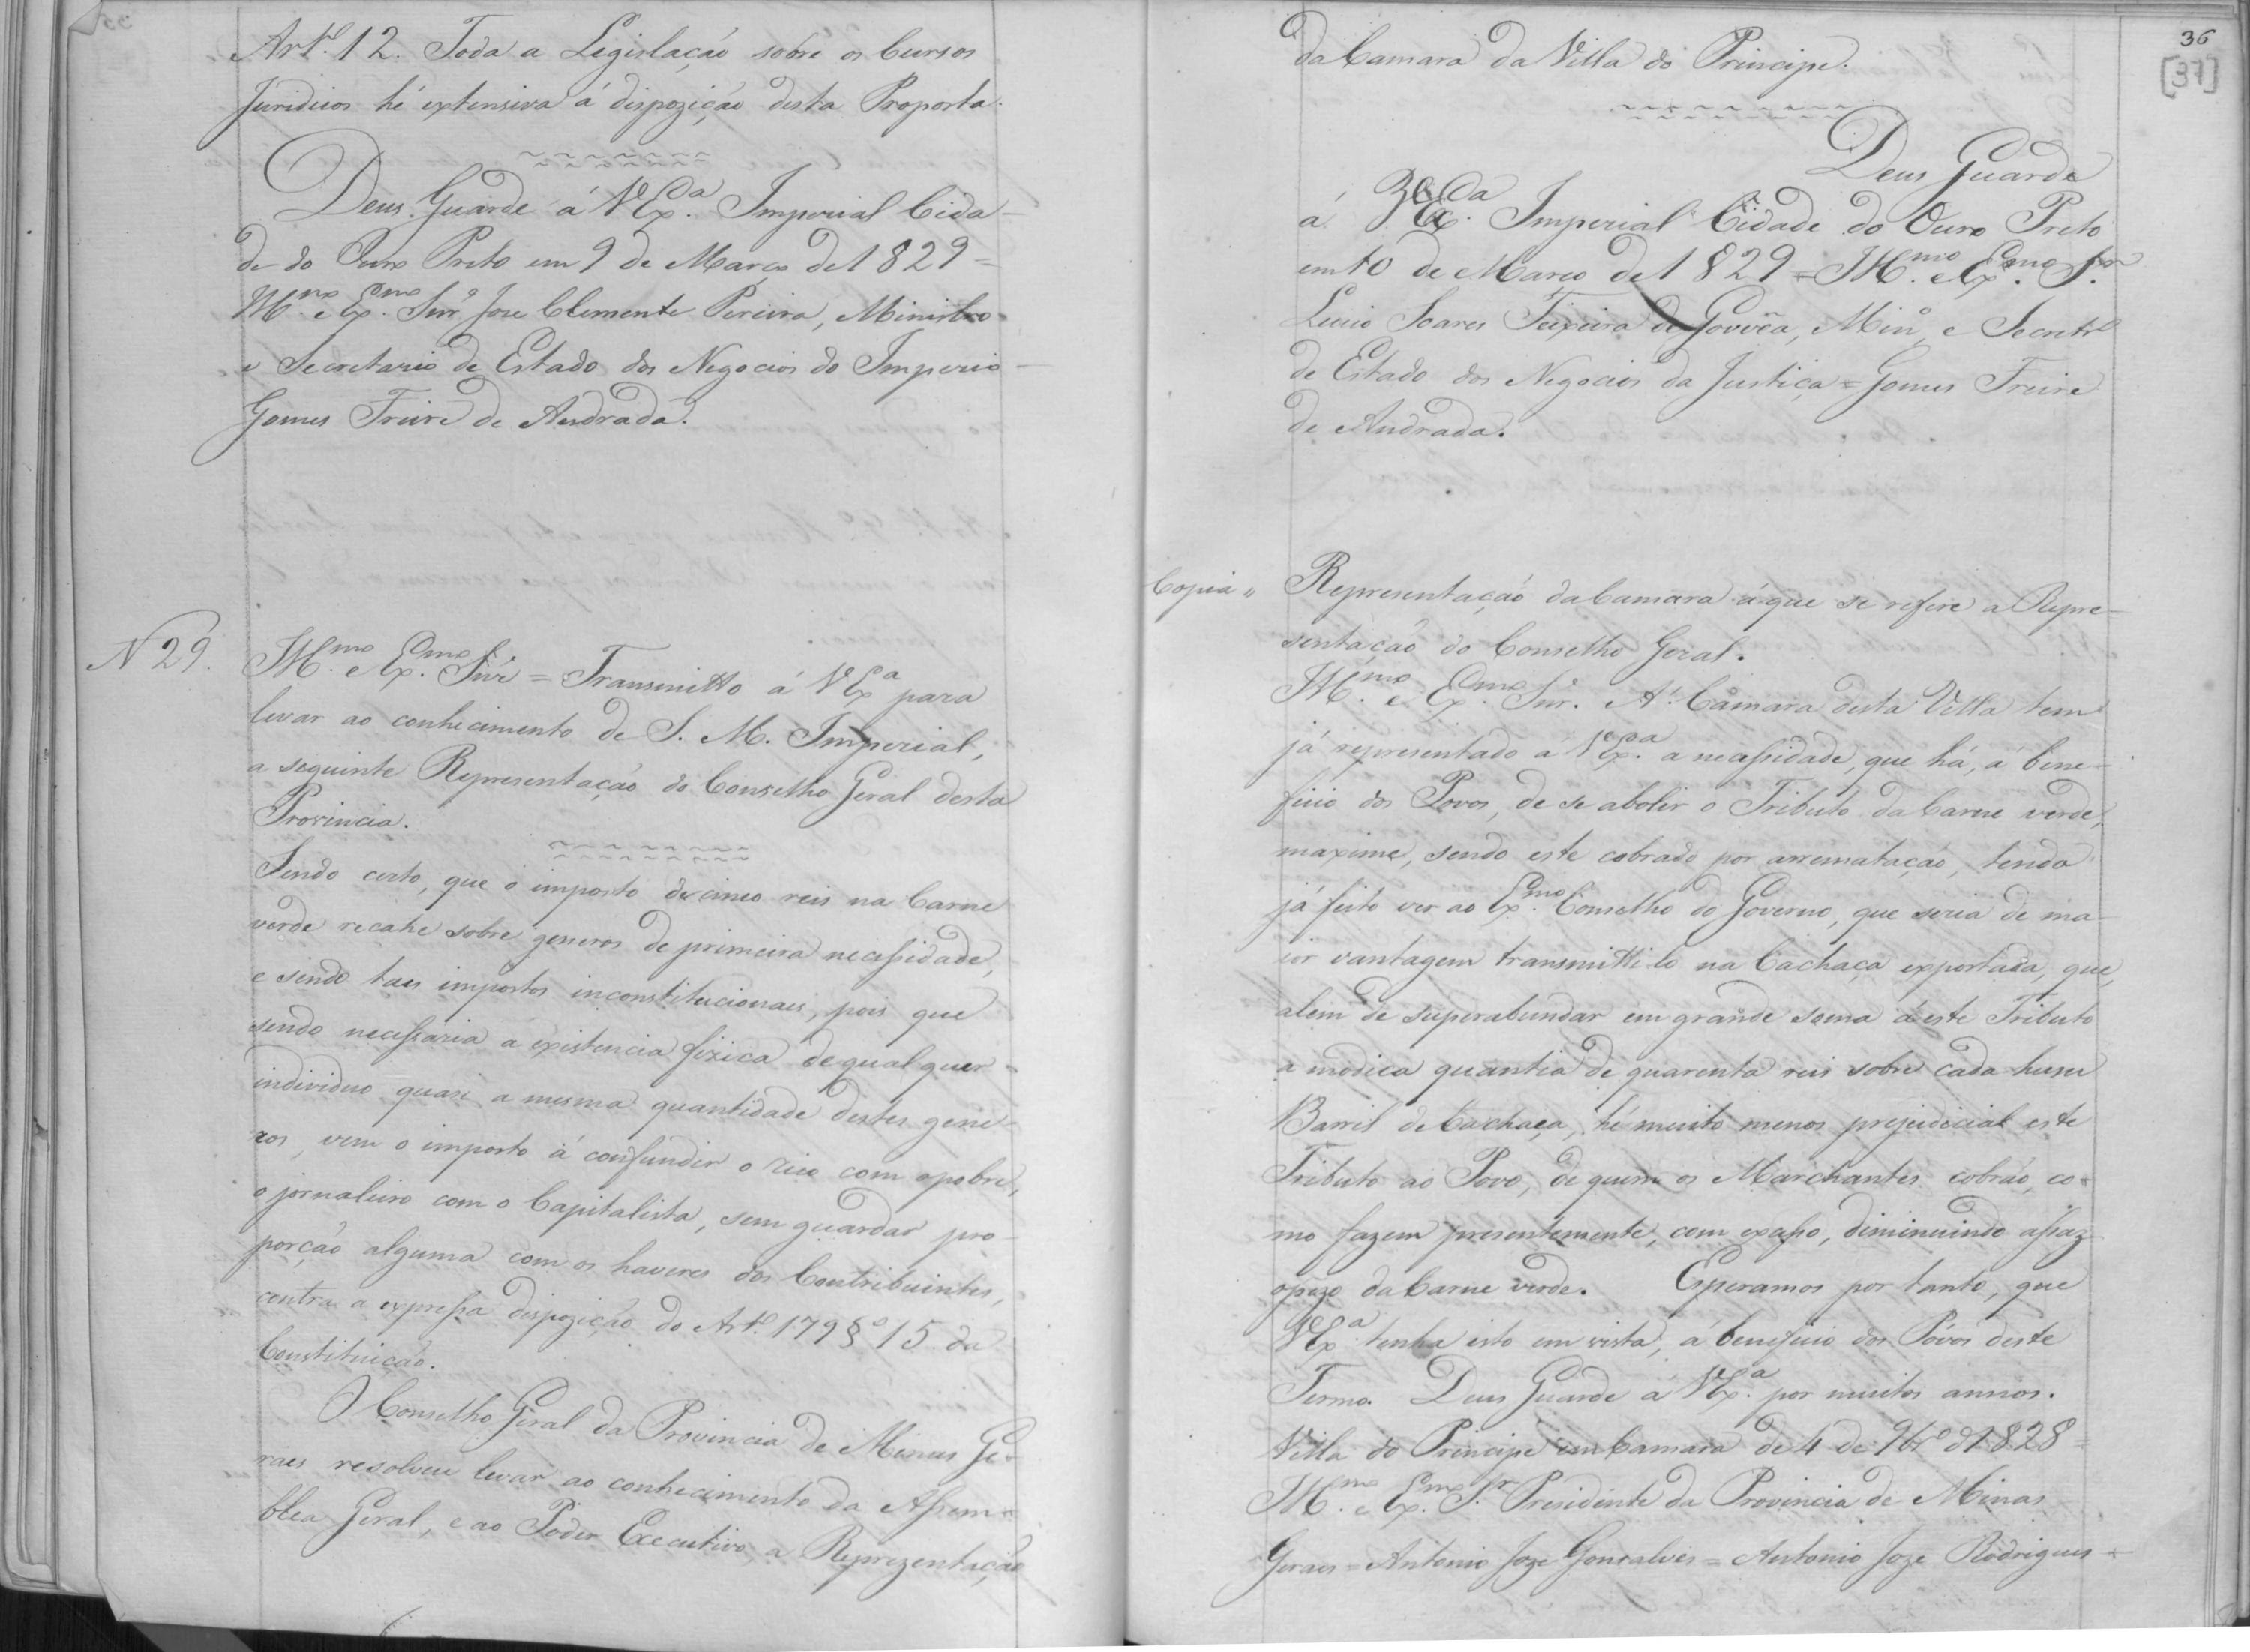 Artº. 12. Toda a Legislação sobre os Cursos
Juridicos hé extensiva á dispozição desta Proposta.
Deus Guarde á VExª. Imperial Cida-
de do Ouro Preto em 9 de Março de 1829 =
Illmº. e Exmº. Snr. Joze Clemente Pereira, Ministro
e Secretario de Estado dos Negocios do Imperio -
Gomes Freire de Andrada.
N 29.
Illmº. e Exmº. Snr = Transmitto á VExª para
levar ao conhecimento de S. M. Imperial,
a seguinte Representação do Conselho Geral desta
Provincia.
Sendo certo, que o imposto de cinco reis na Carne
verde recahe sobre generos de primeira necessidade,
e sendo taes impostos inconstitucionaes, pois que
sendo necessaria a existencia fizica de qualquer
individuo quasi a mesma quantidade destes gene-
ros, vem o imposto á confundir o rico com o pobre,
o jornaleiro com o Capitalista, sem guardar pro-
porção alguma com os haveres dos Contribuintes,
contra a expressa dispozição do Artº. 179 §º 15 da
Constituição.
O Conselho Geral da Provincia de Minas Ge-
raes resolveu levar ao conhecimento da Assem-
blea Geral, e ao Poder Executivo a Reprezentação
36
[37]
da Camara da Villa do Principe.
Deus Guarde
á VExª. Imperial Cidade do Ouro Preto
em 10 de Março de 1829 = Illmº. e Exmº. Sr.
Lucio Soares Teixeira de Gouvêa, Minº e Secretº
de Estado dos Negocios da Justiça = Gomes Freire
de Andrada.
Copia "
Representação da Camara á que se refere a Repre-
sentação do Conselho Geral.
Illmº. e Exmº. Snr. A Camara desta Villa tem
já representado a VExª. a necessidade, que há, á bene-
ficio dos Povos, de se abolir o Tributo da Carne verde,
maxime, sendo este cobrado por arrematação, tendo
já feito ver ao Exmº. Conselho do Governo, que seria de ma-
ior vantagem transmitti-lo na Cachaça exportada, que,
alem de superabundar em grande soma á este Tributo
a modica quantia de quarenta reis sobre cada hum
Barril de Cachaça, hé muito menos prejudicial este
Tributo ao Povo, de quem os Marchantes cobrão, co-
mo fazem presentemente, com excesso, diminuindo assaz
o pezo da Carne verde. Esperamos por tanto, que
VExª. tenha isto em vista, á beneficio dos Povos deste
Termo. Deus Guarde á VExª. por muitos annos.
Villa do Principe em Camara de 4 de 9brº d 1828 =
Illmº. e Exmº. Sr. Presidente da Provincia de Minas
Geraes = Antonio Joze Gonsalves = Antonio Joze Rodrigues =